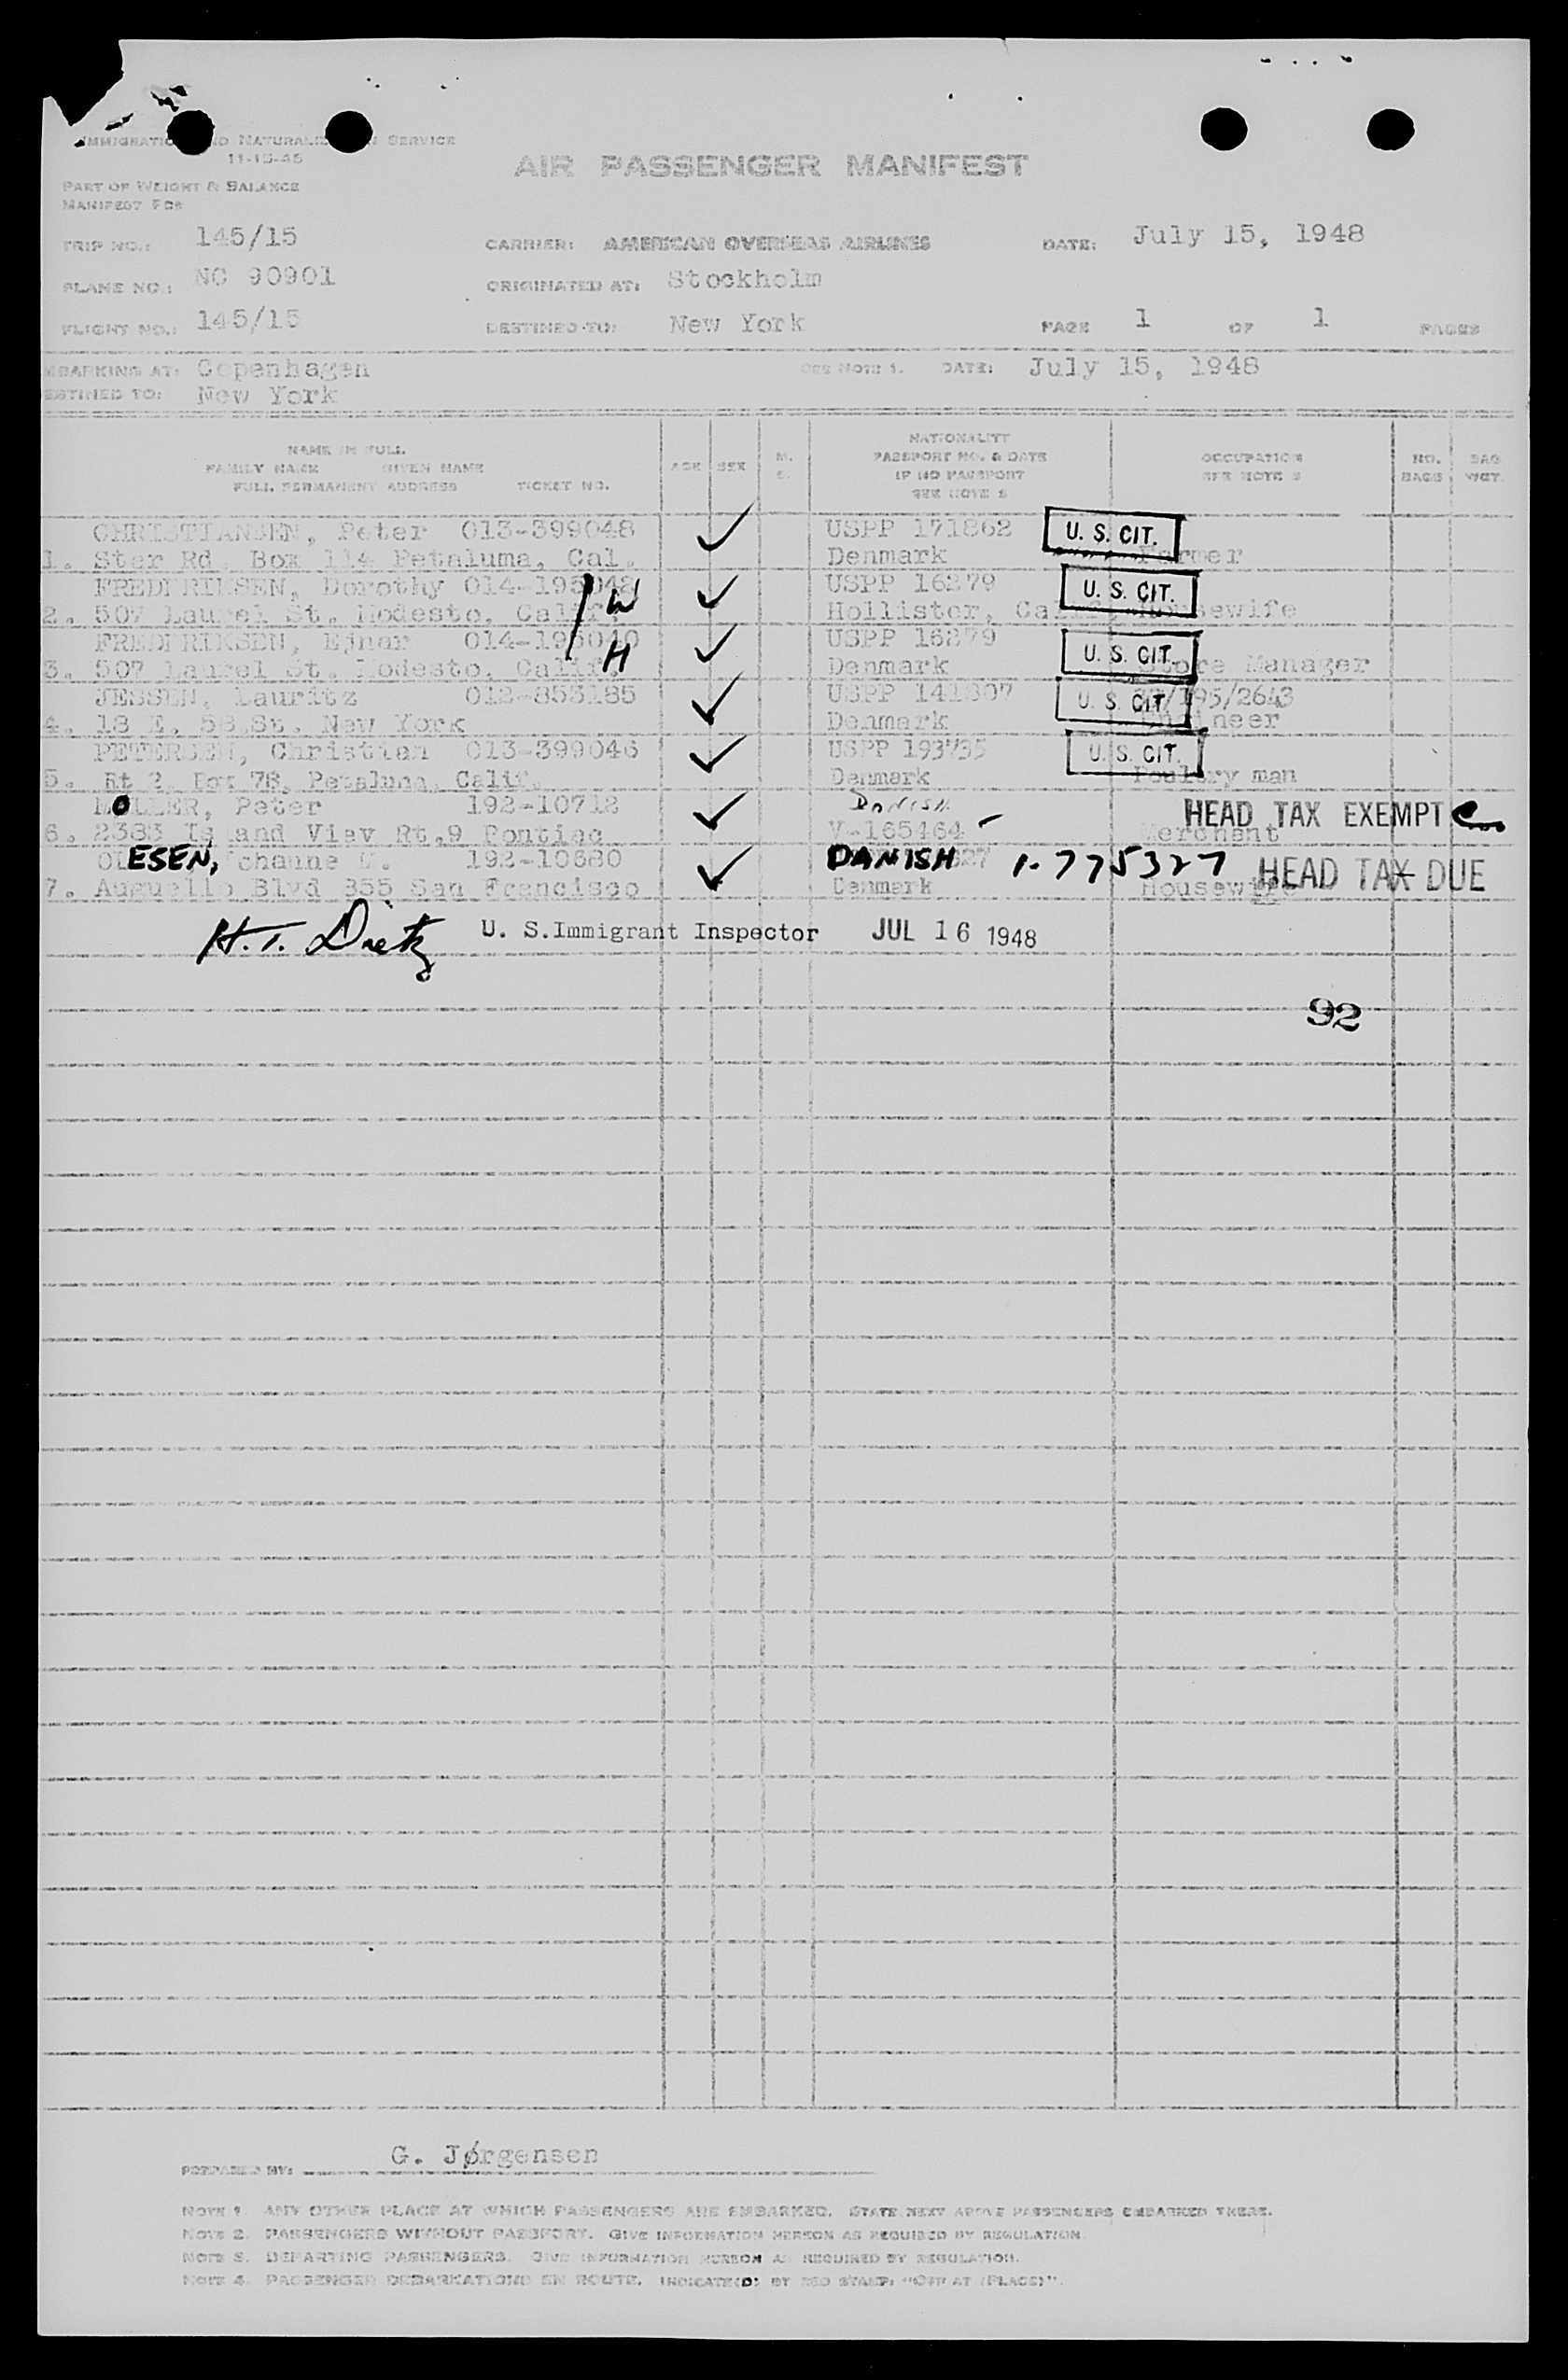 IMMIGRATION AND NATURALIZATION SERVICE
11-15-45
AIR PASSENGER MANIFEST
PART OF WEIGHT & BALANCE
MANIFEST FOR
TRIP NO.: 145/15 CARRIER: AMERICAN OVERSEAS AIRLINES DATE: July 15, 1948
PLANE NO.: NC 90901 ORIGINATED AT: Stockholm
FLIGHT NO.: 145/15 DESTINED TO: New York PAGE 1 OF 1 PAGES
MBARKING AT: Copenhagen SEE NOTE 1. DATE: July 15, 1948
ESTINED TO: New York
NAME IN FULL
FAMILY NAME GIVEN NAME
FULL PERMANENT ADDRESS TICKET NO.
AGE SEX M. S.
NATIONALITY
PASSPORT NO. & DATE
IF NO PASSPORT
SEE NOTE 2
OCCUPATION
SEE NOTE 3
NO. BAGS
BAG WGT.
CHRISTIANSEN, Peter 013-399048 USPP 171862 U. S. CIT.
1. Star Rd. Box 114 Petaluma, Cal. Denmark Farmer
FREDERIKSEN, Dorothy 014-195048 W USPP 16279 U. S. CIT.
2. 507 Laurel St. Modesto, Calif. Hollister, Calif. Housewife
FREDERIKSEN, Ejnar 014-195040 H USPP 16279 U. S. CIT.
3. 507 Laurel St. Modesto, Calif. Denmark Store Manager
JESSEN, Lauritz 012-853185 USPP 141807 U. S. CIT. /195/2643
4. 18 E. 58 St. New York Denmark Engineer
PETERSEN, Christian 013-399046 USPP 193735 U. S. CIT.
5. Rt 2, Box 78, Petaluma, Calif. Denmark Poultry man
MOLLER, Peter 192-10712 Danish HEAD TAX EXEMPT
6. 2383 Island View Rt.9 Pontiac V-165464 Merchant
OLESEN, 192-10680 DANISH 1-775327 HEAD TAX DUE
7. Auguello Blvd 355 San Francisco Denmark Housewife
H. T. Dietz U. S.Immigrant Inspector JUL 16 1948
92
PREPARED BY: G. Jørgensen
NOTE 1. ANY OTHER PLACE AT WHICH PASSENGERS ARE EMBARKED. STATE NEXT ABOVE PASSENGERS EMBARKED THERE.
NOTE 2. PASSENGERS WITHOUT PASSPORT. GIVE INFORMATION HEREON AS REQUIRED BY REGULATION.
NOTE 3. DEPARTING PASSENGERS. GIVE INFORMATION HEREON AS REQUIRED BY REGULATION.
NOTE 4. PASSENGER DEBARKATIONS EN ROUTE. INDICATE(D) BY RED STAMP: "OFF AT (PLACE)".